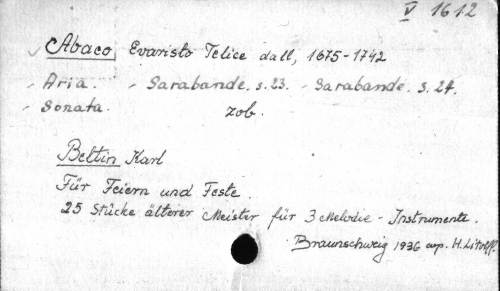 V 1612
Abaco, Evaristo Felice dall, 1675-1742
Aria. - Sarabande. s.23. - Sarabande. s.24.
Sonata. zob.
Beltin Karl
Für Feiern und Feste.
25 Stücke älterer Meister für 3 Melodie - Instrumente.
Braunschweig 1936 cop. H. Litolff.